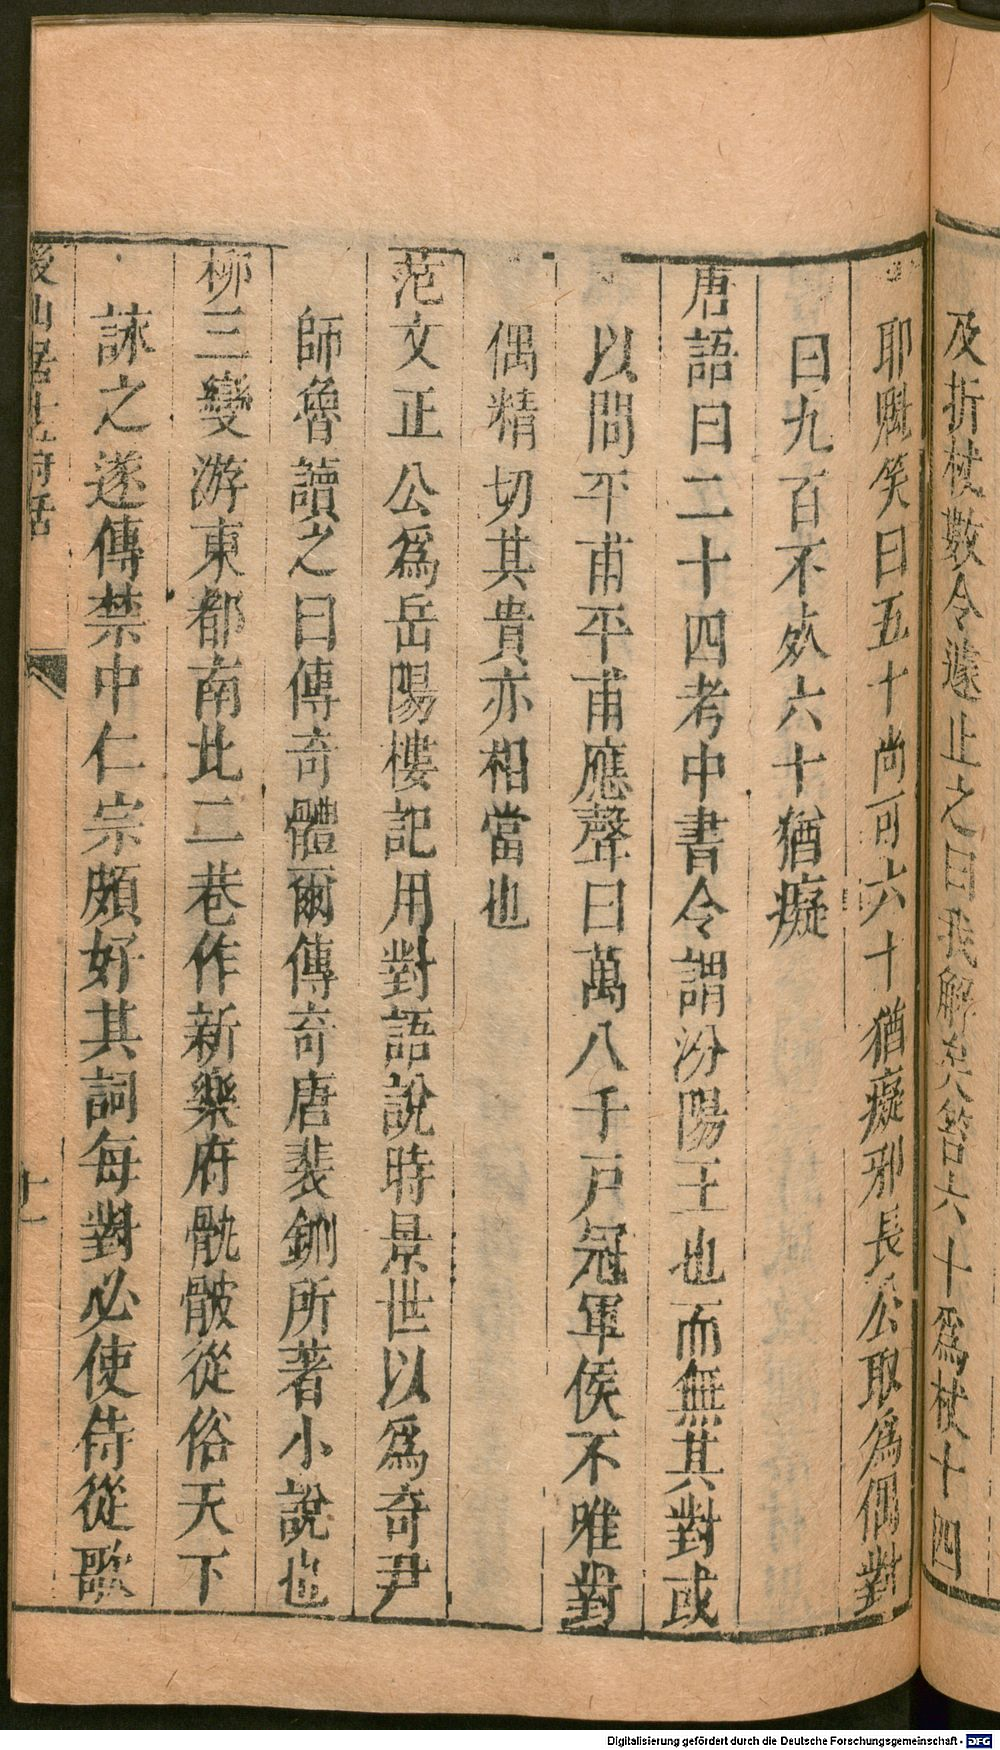 及折杖數令遽止之曰我解矣笞六十爲杖十四
耶魁笑曰五十尚可六十猶癡邪長公取爲偶對
曰九百不死六十猶癡
唐語曰二十四考中書令謂汾陽王也而無其對或
以問平甫平甫應聲曰萬八千戶冠軍侯不唯對
偶精切其貴亦相當也
范文正公爲岳陽樓記用對語說時景世以爲奇尹
師魯讀之曰傳奇體爾傳奇唐裴鉶所著小說也
栁三變游東都南北二巷作新樂府骫骳從俗天下
詠之遂傳禁中仁宗頗好其詞每對必使侍從歌
後山居士詩話
十一
Digitalisierung gefördert durch die Deutsche Forschungsgemeinschaft - DFG